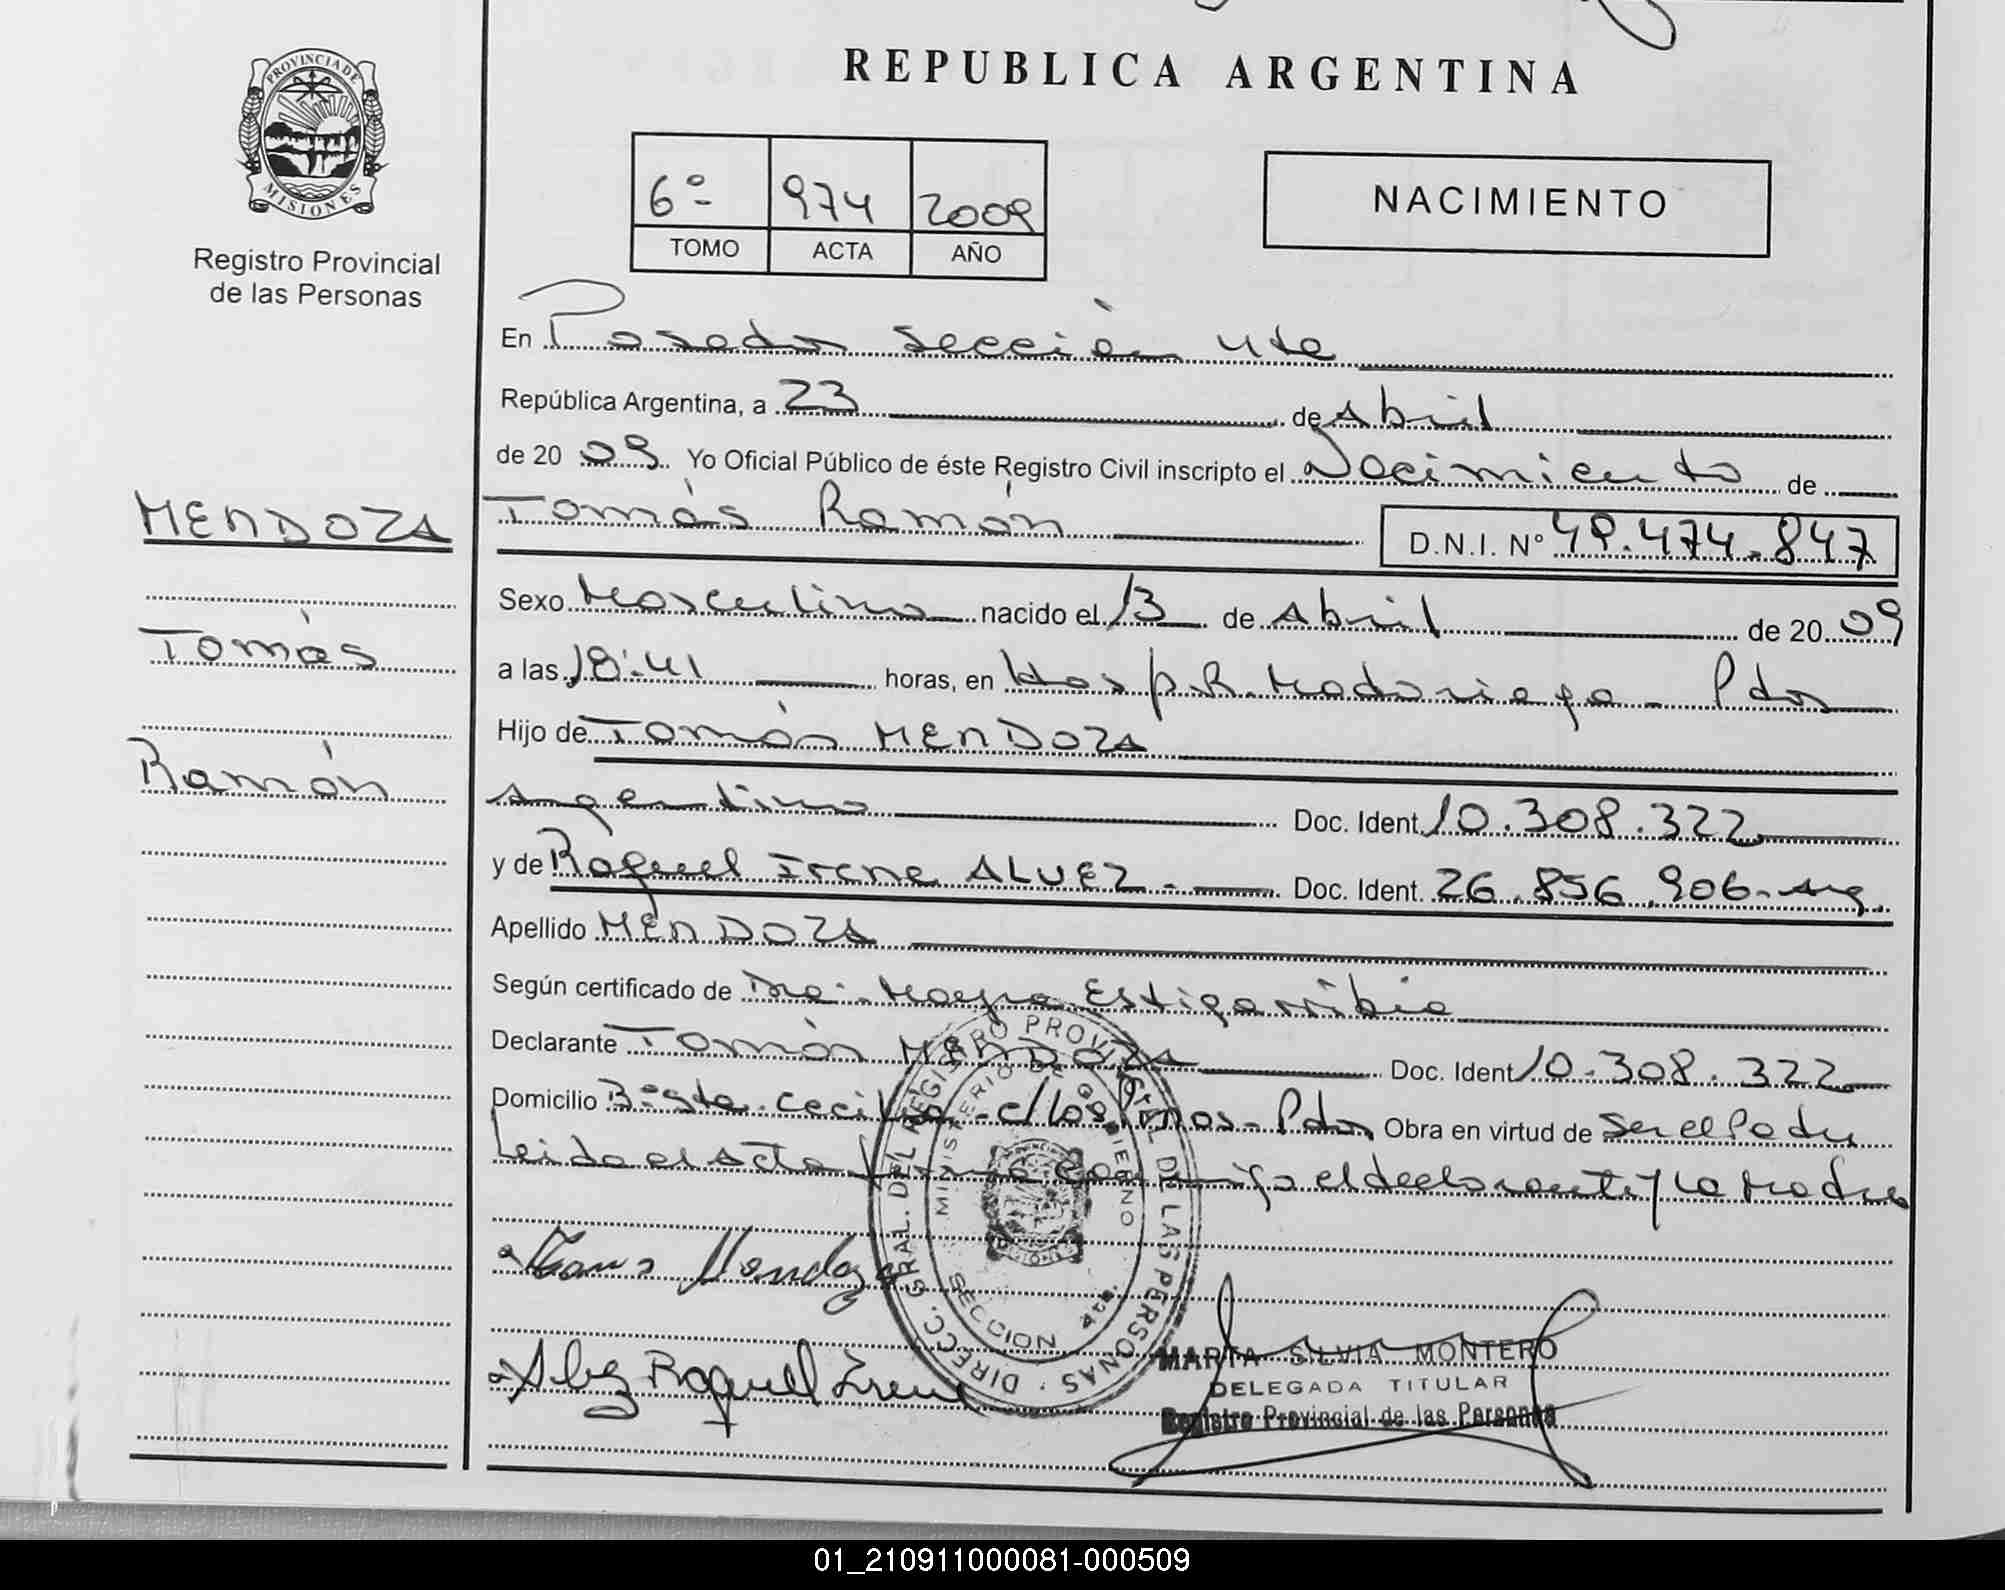 REPUBLICA ARGENTINA
PROVINCIA DE
MISIONES
Registro Provincial
de las Personas
6º 974 2009
TOMO ACTA AÑO
NACIMIENTO
En Posadas sección 4ta
República Argentina, a 23 de Abril
de 2009 Yo Oficial Público de éste Registro Civil inscripto el Nacimiento de
MENDOZA
Tomás
Ramón
Tomás Ramón D.N.I. Nº 49.474.847
Sexo Masculino nacido el 13 de Abril de 2009
a las 18:41 horas, en Hosp. R. Madariaga - Pdas
Hijo de Tomás MENDOZA
Argentino Doc. Ident. 10.308.322
y de Raquel Irene ALVEZ.- Doc. Ident. 26.856.906- Arg.
Apellido MENDOZA
Según certificado de Dra. Mayra Estigarribia
Declarante Tomás MENDOZA Doc. Ident 10.308.322
Domicilio Bº Sta. Cecilia - c/ Los Pinos - Pdas Obra en virtud de ser el Padre
Leida el Acta firma conmigo el declarante y la Madre
Tomas Mendoza
Alvez Raquel Irene
DIRECC. GRAL. DEL REGISTRO PROVINCIAL DE LAS PERSONAS
MINISTERIO DE GOBIERNO
SECCION 4ta.
MARTA SILVIA MONTERO
DELEGADA TITULAR
Registro Provincial de las Personas
01_210911000081-000509